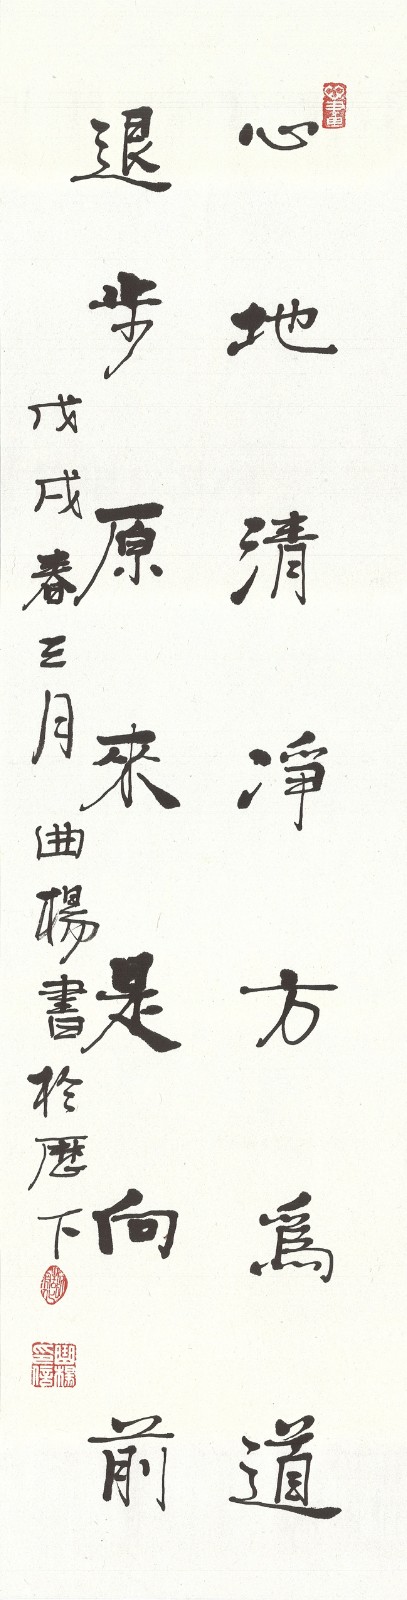 心地清淨方為道
退步原來是向前
戊戌春三月曲楊書於歷下